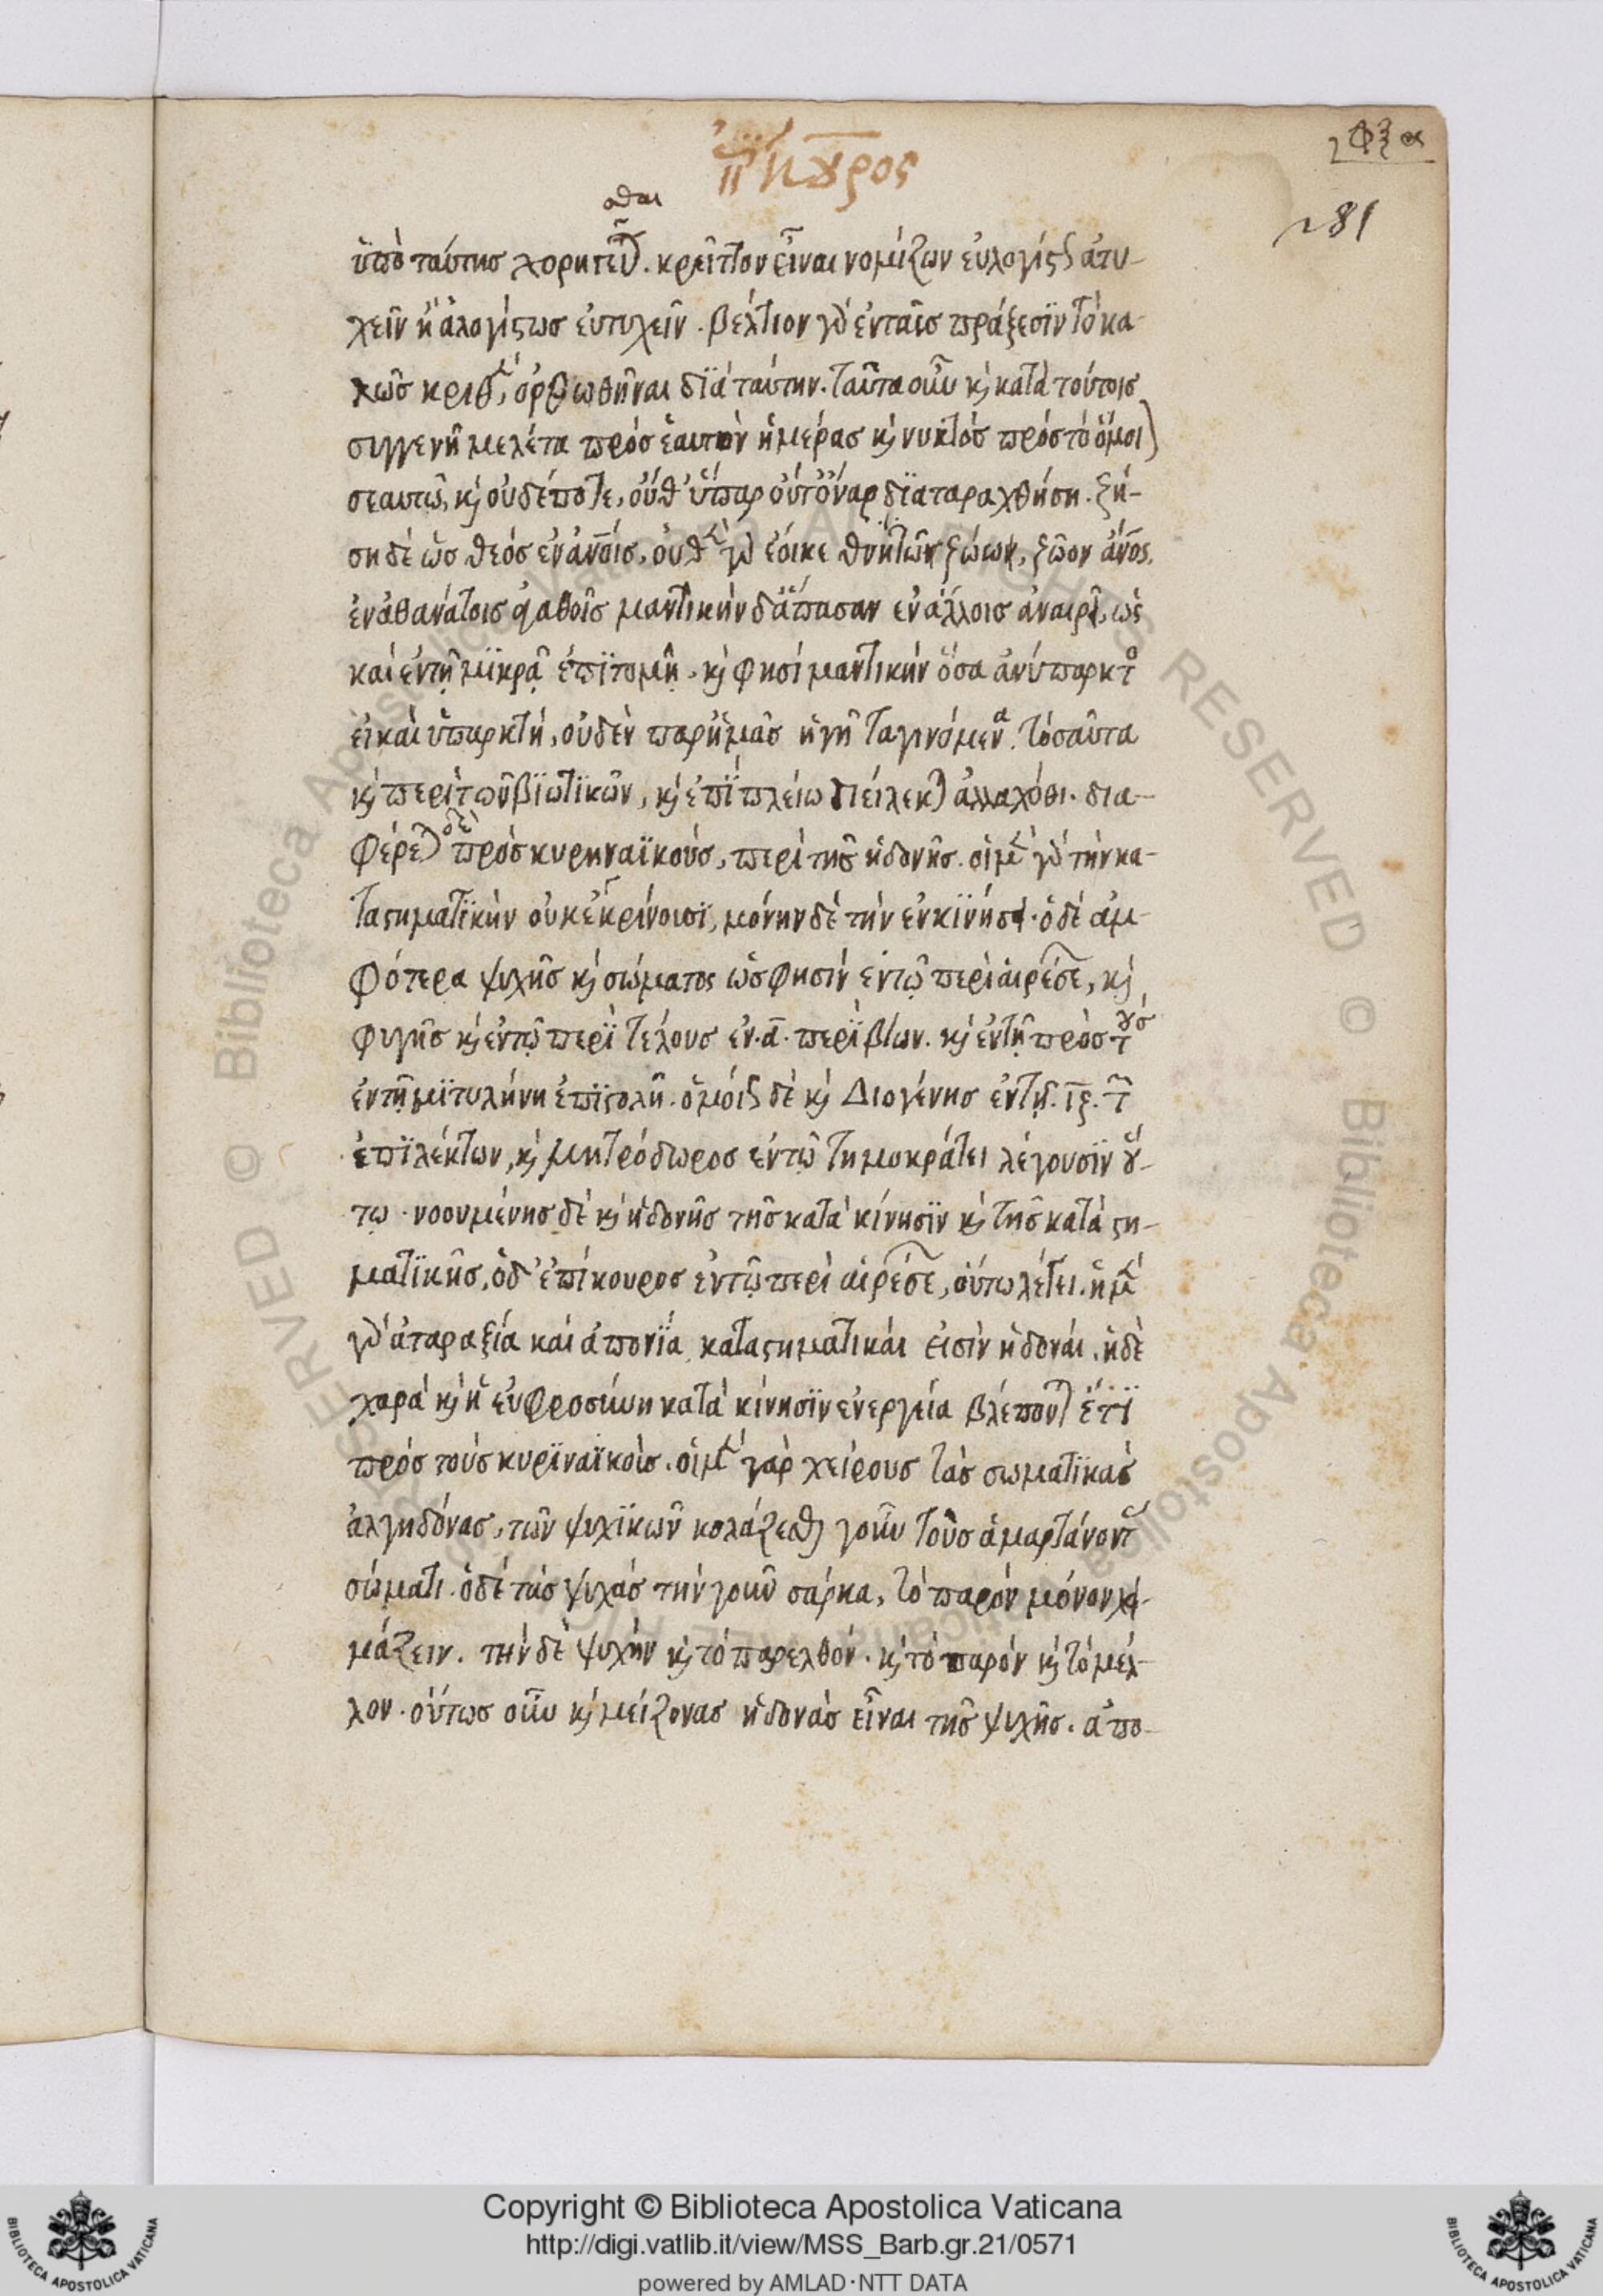 ἐπίκουρος
φξα
281
σθαι
ὑπὸ ταύτης χορηγεῖ. κρεῖττον εἶναι νομίζων εὐλογίστως ἀτυ-
χεῖν ἢ ἀλογίστως εὐτυχεῖν. βέλτιον γὰρ ἐν ταῖς πράξεσϊν τὸ κα-
λῶς κριθὲν, ὀρθωθῆναι δϊὰ ταύτην. ταῦτα οὖν καὶ κατὰ τούτοις
συγγενῆ μελέτα πρὸς ἑαυτὸν ἡμέρας καὶ νυκτὸς πρὸς τὸ ὅμοιον
σεαυτῶ, καὶ οὐδέποτε, οὔθ' ὕπαρ οὔτ' ὄναρ δϊαταραχθήση. ζή-
ση δὲ ὡς θεὸς ἐν ἀνοις, οὐθὲν γὰρ ἔοικε θνητῶν ζώων, ζῶον ἄνος,
ἐν ἀθανάτοις ἀγαθοῖς μαντικὴν δ' ἅπασαν ἐν ἄλλοις ἀναιρεῖ, ὡς
καὶ ἐν τῆ μϊκρᾶ ἐπϊτομῆ. καὶ φησὶ μαντικὴν ὅσα ἀνύπαρκτο
εἰ καὶ ὑπαρκτὴ, οὐδὲν παρ' ἡμᾶς ἡγῆ τὰ γινόμενα. τοσαῦτα
καὶ περὶ τῶν βϊωτϊκῶν, καὶ ἐπϊ πλείω διείλεκται ἀλλαχόθι. δια-
φέρεται δὲ πρὸς κυρηναϊκοὺς, περὶ τῆς ἡδονῆς. οἱ μὲν γὰρ τὴν κα-
ταστηματϊκὴν οὐκ ἐκκρίνουσϊ, μόνην δὲ τὴν ἐν κϊνήσει. ὁ δὲ ἀμ-
φότερα ψυχῆς καὶ σώματος ὥς φησιν ἐν τῶ περὶ αἱρέσε, καὶ
φυγῆς καὶ ἐν τῶ περϊ τέλους ἐν. α. περϊ βίων. καὶ ἐν τῆ πρὸς τοὺς
ἐν τῆ μϊτυλήνη ἐπϊστολῆ. ὁμοίως δὲ καὶ Διογένης ἐν τῆ. ιζ. τῶν
ἐπϊλέκτων, καὶ μητρόδωρος ἐν τῶ τημοκράτει λέγουσϊν οὕ-
τω. νοουμένης δὲ καὶ ἡδονῆς τῆς κατὰ κίνησϊν καὶ τῆς καταστη-
ματϊκῆς, ὁ δ' ἐπίκουρος ἐν τῶ περὶ αἱρέσε, οὕτω λέγει. ἡ μὲν
γὰρ ἀταραξία καὶ ἀπονϊα καταστηματικαί εἰσὶν ἡδοναὶ. ἡ δὲ
χαρὰ καὶ ἡ εὐφροσύνη κατὰ κίνησϊν ἐνεργεία βλέπονται ἔτϊ
πρὸς τοὺς κυρϊναϊκοὺς. οἱ μὲν γὰρ χείρους τὰς σωματϊκὰς
ἀλγηδόνας, τῶν ψυχϊκῶν κολάζεσθαι γοῦν τοὺς ἁμαρτάνοντας
σώματι. ὁ δὲ τὰς ψυχὰς τὴν γοῦν σάρκα, τὸ παρὸν μόνον χει-
μάζειν. τὴν δὲ ψυχὴν καὶ τὸ παρελθὸν. καὶ τὸ παρὸν καὶ τὸ μέλ-
λον. οὕτως οὖν καὶ μείζονας ἡδονὰς εἶναι τῆς ψυχῆς. ἀπο-
Copyright © Biblioteca Apostolica Vaticana
http://digi.vatlib.it/view/MSS_Barb.gr.21/0571
powered by AMLAD·NTT DATA